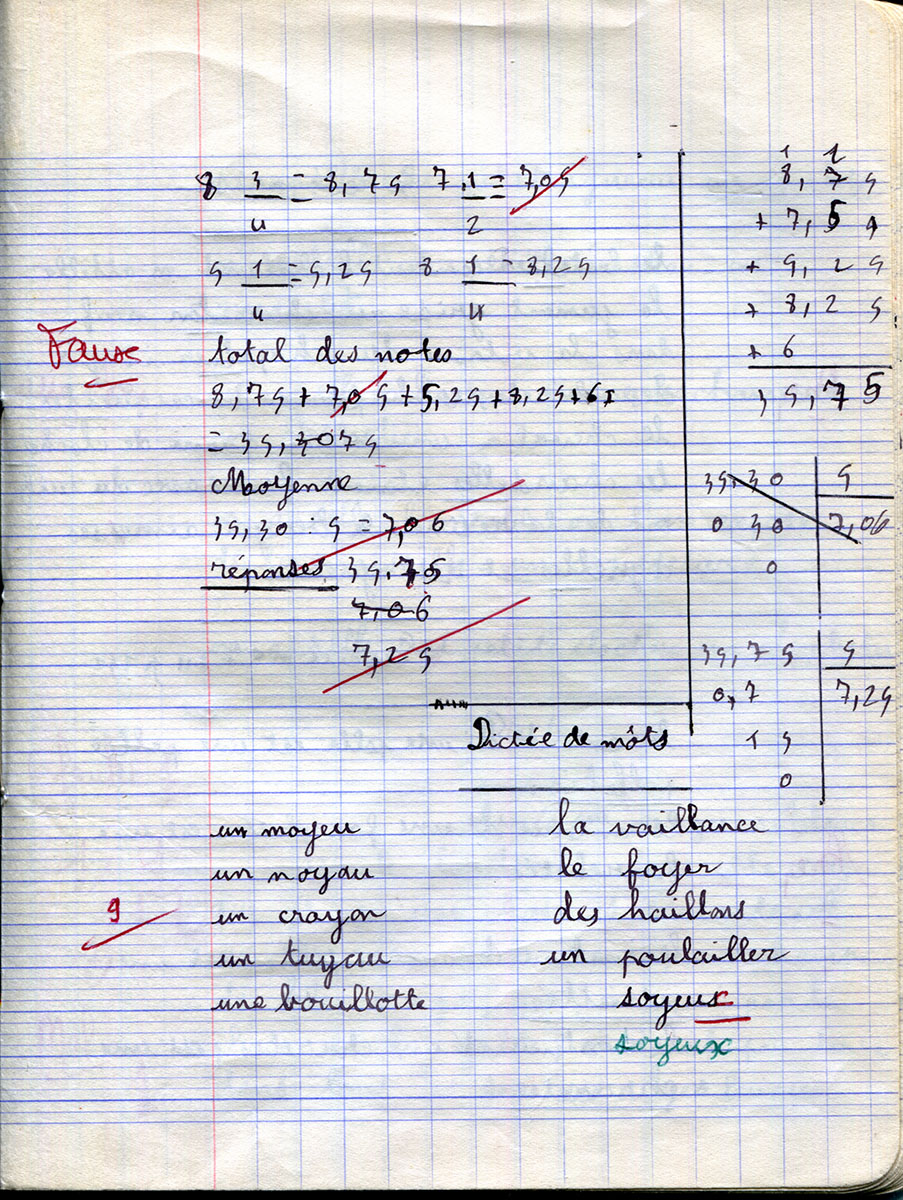 8 3/4 = 8,75 7 1/2 = 7,05
5 1/4 = 5,25 8 1/4 = 8,25
Fause
total des notes
8,75 + 7,05 + 5,25 + 8,25 + 6 =
= 35,3075
Moyenne
35,30 : 5 = 7,06
réponses 35,75
7,06
7,25
1 1
8,75
+ 7,55
+ 5,25
+ 8,25
+ 6
35,75
35,30 5
0 30 7,06
0
35,75 5
0,7 7,25
15
0
Dictée de môts
un moyeu la vaillance
un noyau le foyer
9 un crayon des haillons
un tuyau un poulailler
une bouillotte soyeux
soyeux